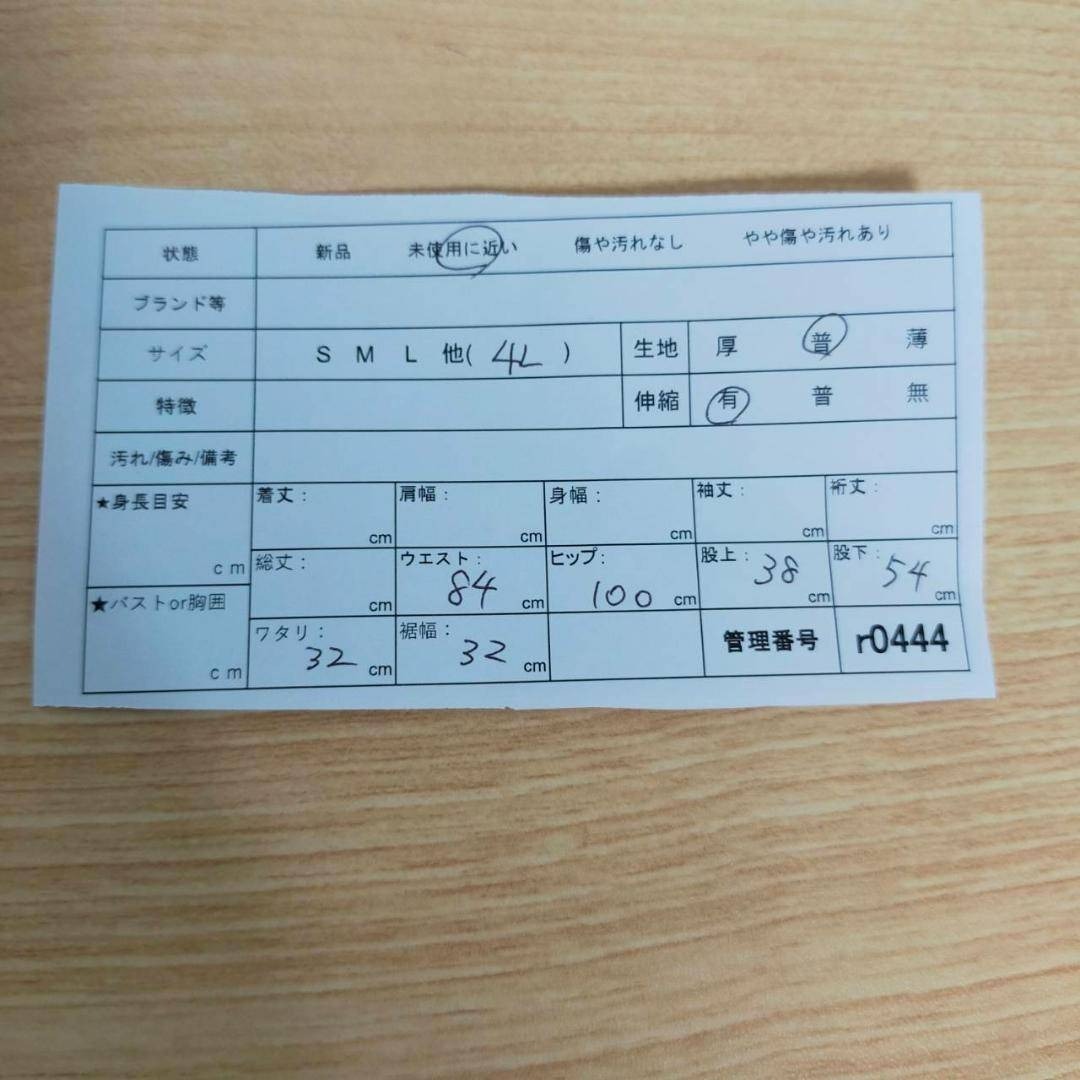 状態 新品 未使用に近い 傷や汚れなし やや傷や汚れあり
ブランド等
サイズ S M L 他( 4L ) 生地 厚 普 薄
特徴 伸縮 有 普 無
汚れ/傷み/備考
★身長目安 cm
着丈： cm 肩幅： cm 身幅： cm 袖丈： cm 裄丈： cm
総丈： cm ウエスト： 84 cm ヒップ： 100 cm 股上： 38 cm 股下： 54 cm
★バストor胸囲 cm
ワタリ： 32 cm 裾幅： 32 cm 管理番号 r0444